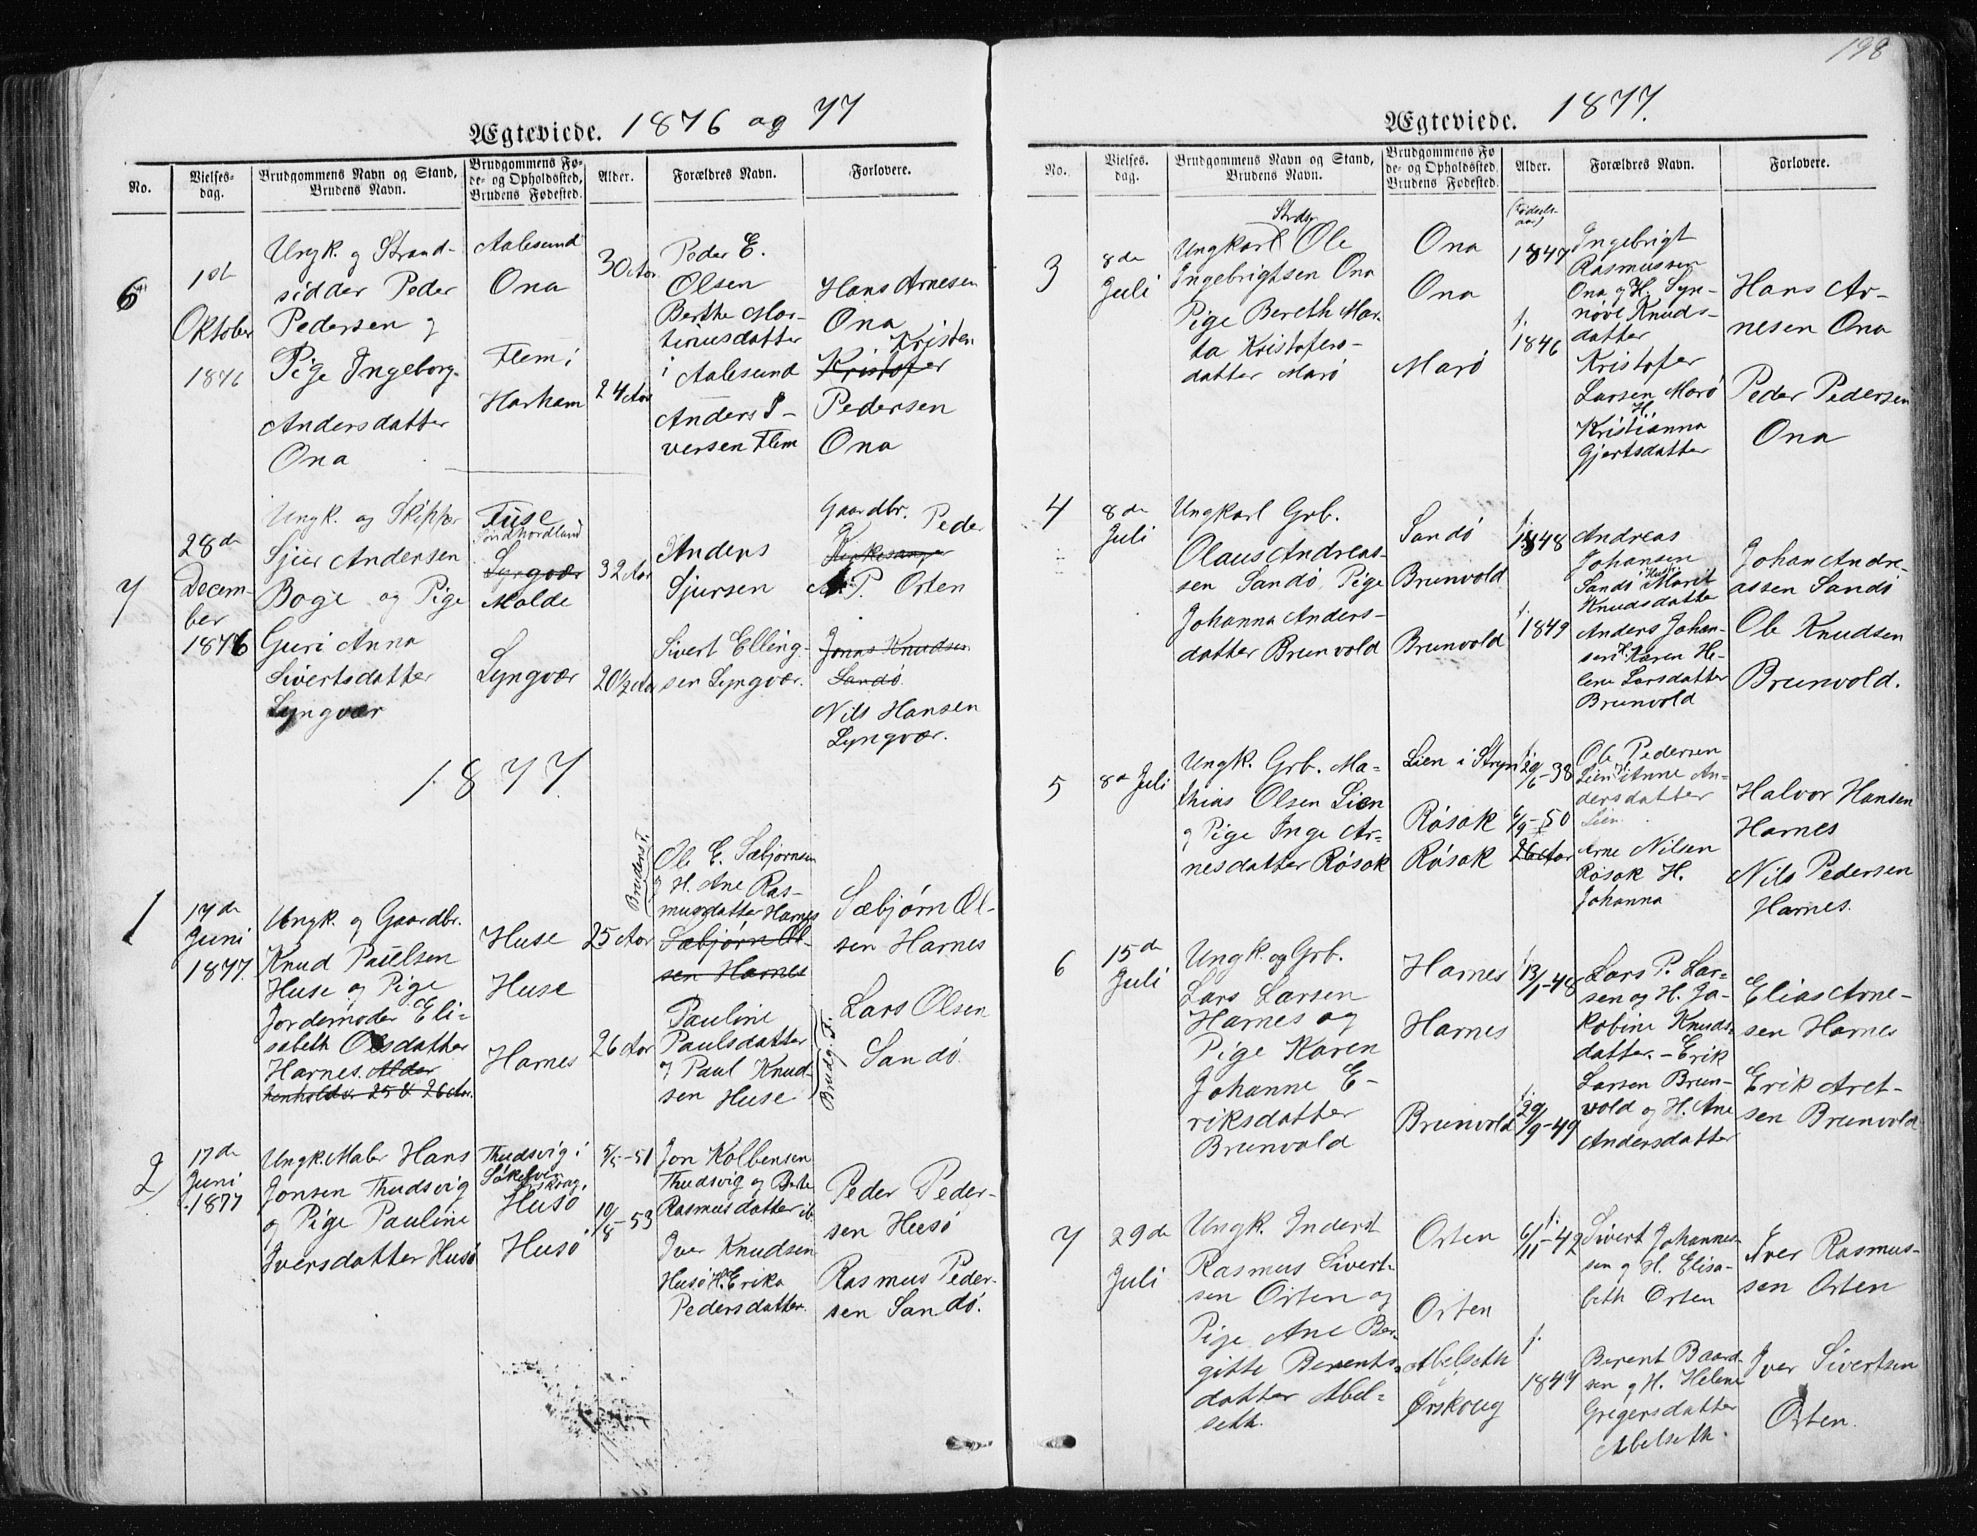 Ægteviede. 1876 og 77
No.
Vielses-
dag.
Brudgommens Navn og Stand,
Brudens Navn.
Brudgommens Fø-
de- og Opholdssted,
Brudens Fødested.
Alder.
Forældres Navn.
Forlovere.
6
1st
Oktober
1876
Ungk. og Strand-
sidder Peder
Pedersen og
Pige Ingeborg
Andersdatter
Ona
Aalesund
Ona
Flem i
Harham
30 Aar
24 Aar
Peder E.
Olsen
Berthe Mar-
tinusdatter
i Aalesund
Anders I-
versen Flem
Hans Arnesen
Ona
Kristen
Kristofer
Pedersen
Ona
7
28de
Decem-
ber
1876
Ungk. og Skipper
Sjur Andersen
Boge og Pige
Guri Anna
Sivertsdatter
Lyngvær
Fuse
Søndhordland
Lyngvær
Molde
Lyngvær
32 Aar
20½ Aar
Anders
Sjursen
Sivert Elling-
sen Lyngvær.
Gaardbr. Peder
Kirkesanger
P. Orten
Jonas Knudsen
Sandø
Nils Hansen
Lyngvær.
1877
1
17de
Juni
1877
Ungk. og Gaardbr.
Knud Paulsen
Huse og Pige
Jordemoder Eli-
sabeth Olsdatter
Harnes. Alder
henholdsv 25 & 26 Aar.
Huse
Huse
Harnes
25 Aar
26 Aar
Brudens F.
Ole E. Sæbjørnsen
og H. Ane Ras-
musdatter Harnes
Sæbjørn Ol-
sen Harnes
Pauline
Paulsdatter
og Paul Knud-
sen Huse
Brudg. F.
Sæbjørn Ol-
sen Harnes
Lars Olsen
Sandø.
2
17de
Juni
1877
Ungk. Maler Hans
Jonsen Thudsvig
og Pige Pauline
Iversdatter Husø
Thudsvig i
Husø
Husø
5/5-51
10/8-53
Jon Kolbensen
Thudsvig og Berte
Rasmusdatter ib.
Iver Knudsen
Husø H. Erika
Pedersdatter.
Peder Peder-
sen Husø
Rasmus Peder-
sen Sandø.
198
Ægteviede. 1877.
No.
Vielses-
dag.
Brudgommens Navn og Stand,
Brudens Navn.
Brudgommens Fø
de- og Opholdssted,
Brudens Fødested.
Alder.
Forældres Navn.
Forlovere.
(Fødsels-
aar)
3
8de
Juli
Strdsr
Ungkarl Ole
Ingebrigtsen Ona
Pige Bereth Mar-
ta Kristofers-
datter Marø
Ona
Ona
Marø
1847
f.
1846
Ingebrigt
Rasmussen
Ona og H. Syn-
nøve Knuds-
datter
Kristofer
Larsen Marø
H.
Kristianna
Gjertsdatter
Hans Ar-
nesen Ona
Peder Pedersen
Ona
4
8de
Juli
Ungkarl Grb.
Olaus Andreas-
sen Sandø Pige
Johanna Anders-
datter Brunvold
Sandø
Brunvold
Brunvold
f.
1848
f.
1849
Andreas
Johansen
Sandø Marit
Knudsdatter
Anders Johan-
sen H. Karen He-
lene Larsdatter
Brunvold
Johan Andre-
assen Sandø
Ole Knudsen
Brunvold.
5
8de Juli
Ungk. Grb. Ma-
thias Olsen Lien
og Pige Inge Ar-
nesdatter Røsok
Lien i Stryn
Røsok
Røsok
f.
29/6-38
6/9-50
26 Aar
Ole Pedersen
Lien H. Anne An-
dersdatter
Lien.
Arne Nilsen
Røsok H.
Johanna
Halvor Hansen
Harnes
Nils Pedersen
Harnes.
6
15de
Juli
Ungk. og Grb.
Lars Larsen
Harnes og
Pige Karen
Johanne E-
riksdatter
Brunvold
Harnes
Harnes
Brunvold
f.
13/1-48
f.
29/9-49
Lars P. Lar-
sen og H. Ja-
kobine Knuds-
datter. - Erik
Larsen Brun-
vold og H. Ane
Andersdatter
Elias Arne-
sen Harnes
Erik Aret-
sen Brunvold
7
29de
Juli
Ungk. Inderst
Rasmus Sivert-
sen Orten og
Pige Ane Ber-
gitte Berents-
datter Abel-
seth.
Orten
Orten
Abelseth
Ørskoug
f.
6/11-42
f.
1847
Sivert Johannes-
sen og H. Elisa-
beth Orten
Berent Baard-
sen og H. Helene
Gregersdatter
Abelseth.
Iver Rasmus-
sen Orten
Iver Sivertsen
Orten.